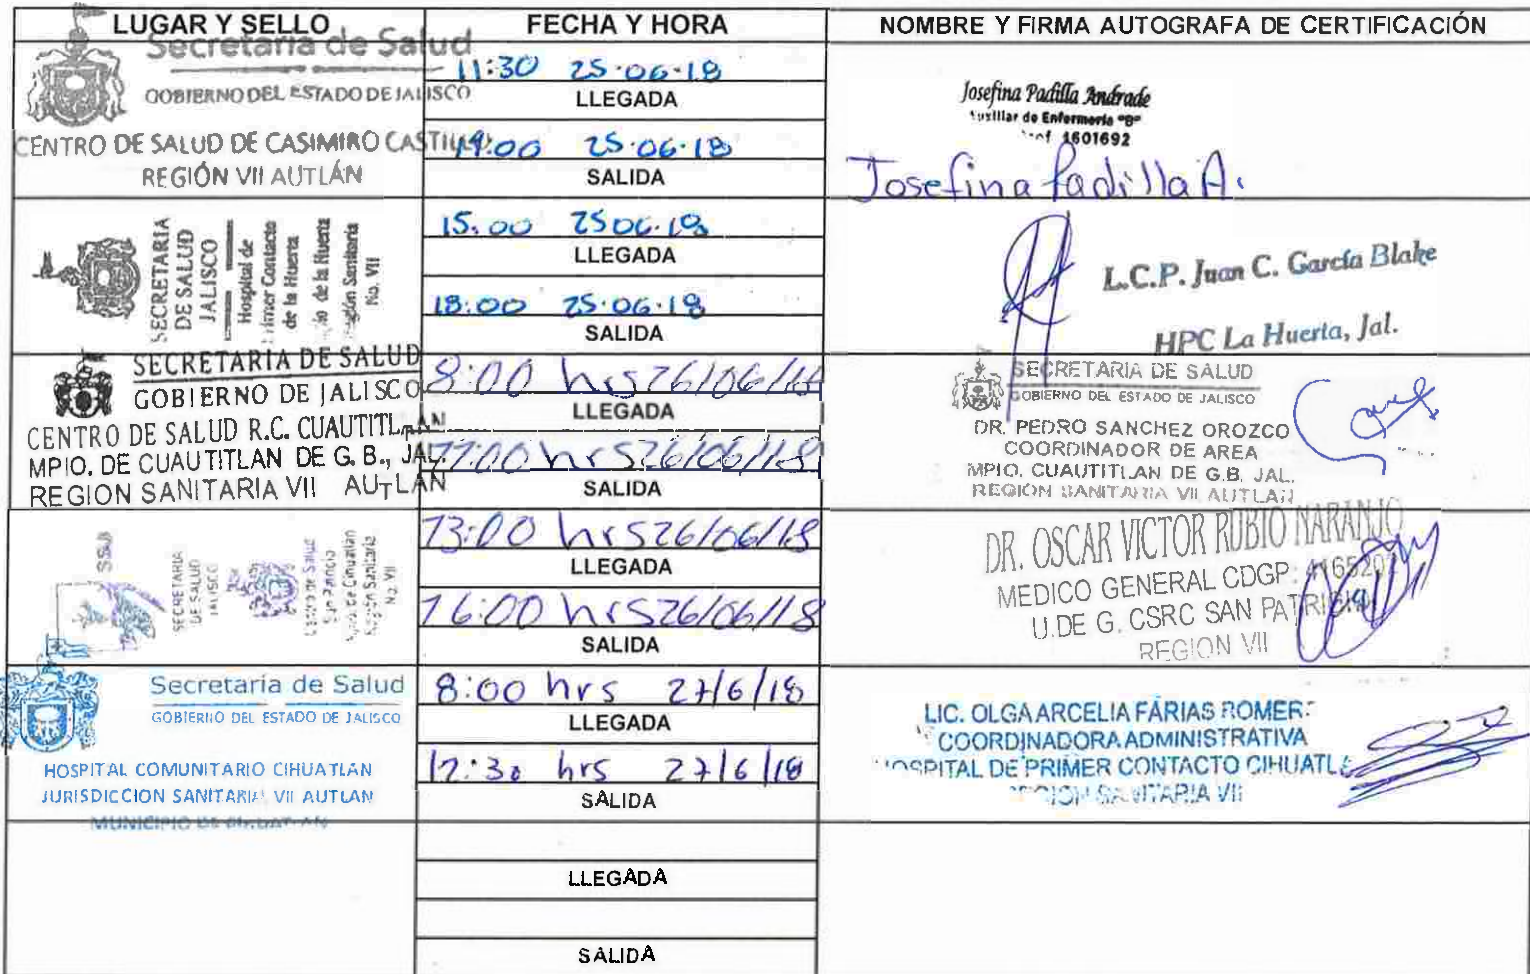 LUGAR Y SELLO
FECHA Y HORA
NOMBRE Y FIRMA AUTOGRAFA DE CERTIFICACIÓN
Secretaría de Salud
GOBIERNO DEL ESTADO DE JALISCO
CENTRO DE SALUD DE CASIMIRO CASTILLO
REGIÓN VII AUTLÁN
11:30 25·06·18
LLEGADA
14:00 25·06·18
SALIDA
Josefina Padilla Andrade
Auxiliar de Enfermería "B"
1601692
Josefina Padilla A.
SECRETARIA
DE SALUD
JALISCO
Hospital de
Primer Contacto
de la Huerta
de la Huerta
Región Sanitaria
No. VII
15:00 25 06·18
LLEGADA
18:00 25·06·18
SALIDA
L.C.P. Juan C. García Blake
HPC La Huerta, Jal.
SECRETARIA DE SALUD
GOBIERNO DE JALISCO
CENTRO DE SALUD R.C. CUAUTITLAN
MPIO. DE CUAUTITLAN DE G. B., JAL.
REGION SANITARIA VII AUTLAN
8:00 hrs 26/06/18
LLEGADA
11:00 hrs 26/06/18
SALIDA
SECRETARIA DE SALUD
GOBIERNO DEL ESTADO DE JALISCO
DR. PEDRO SANCHEZ OROZCO
COORDINADOR DE AREA
MPIO. CUAUTITLAN DE G.B. JAL.
REGION SANITARIA VII AUTLAN
SSJ
SECRETARIA
DE SALUD
JALISCO
Centro de Salud
San Patricio
Mpio. de Cihuatlán
Región Sanitaria
No. VII
13:00 hrs 26/06/18
LLEGADA
16:00 hrs 26/06/18
SALIDA
DR. OSCAR VICTOR RUBIO NARANJO
MEDICO GENERAL CDGP: 4165202
U.DE G. CSRC SAN PATRICIO
REGION VII
Secretaría de Salud
GOBIERNO DEL ESTADO DE JALISCO
HOSPITAL COMUNITARIO CIHUATLAN
JURISDICCION SANITARIA VII AUTLAN
MUNICIPIO DE CIHUATLAN
8:00 hrs 27/6/18
LLEGADA
12:30 hrs 27/6/18
SALIDA
LIC. OLGA ARCELIA FARIAS ROMER
COORDINADORA ADMINISTRATIVA
HOSPITAL DE PRIMER CONTACTO CIHUATLA
REGION SANITARIA VII
LLEGADA
SALIDA